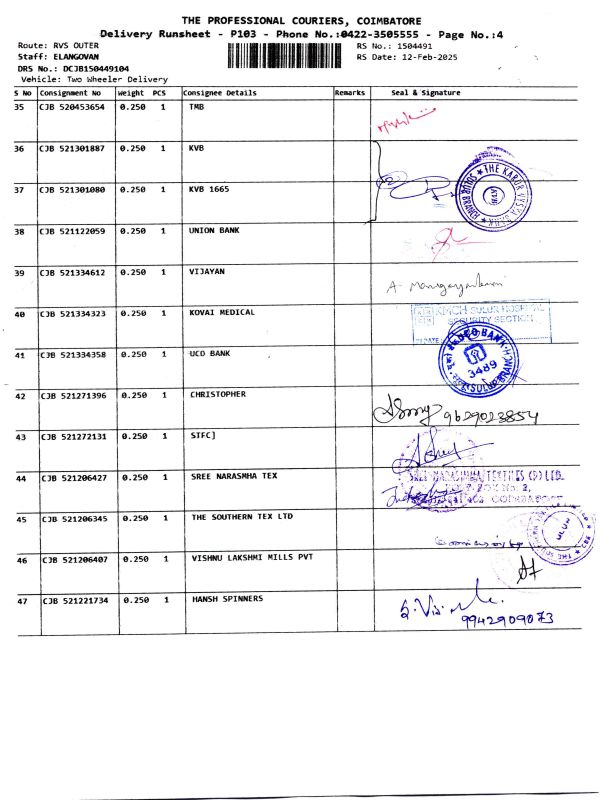 THE PROFESSIONAL COURIERS, COIMBATORE
Delivery Runsheet - P103 - Phone No.:0422-3505555 - Page No.:4
Route: RVS OUTER RS No.: 1504491
Staff: ELANGOVAN RS Date: 12-Feb-2025
DRS No.: DCJB150449104
Vehicle: Two Wheeler Delivery
S No Consignment No Weight PCS Consignee Details Remarks Seal & Signature
35 CJB 520453654 0.250 1 TMB
36 CJB 521301887 0.250 1 KVB
37 CJB 521301080 0.250 1 KVB 1665
THE KARUR VYSYA BANK
SULUR BRANCH
38 CJB 521122059 0.250 1 UNION BANK
39 CJB 521334612 0.250 1 VIJAYAN
40 CJB 521334323 0.250 1 KOVAI MEDICAL
KMCH SULUR HOSPITAL
SECURITY SECTION
DATE
41 CJB 521334358 0.250 1 UCO BANK
UCO BANK
3489
SULUR BRANCH
42 CJB 521271396 0.250 1 CHRISTOPHER
9629023854
43 CJB 521272131 0.250 1 STFC]
44 CJB 521206427 0.250 1 SREE NARASMHA TEX
SREE NARASIMHA TEXTILES (P) LTD.
COIMBATORE
45 CJB 521206345 0.250 1 THE SOUTHERN TEX LTD
46 CJB 521206407 0.250 1 VISHNU LAKSHMI MILLS PVT
47 CJB 521221734 0.250 1 HANSH SPINNERS
9942909073